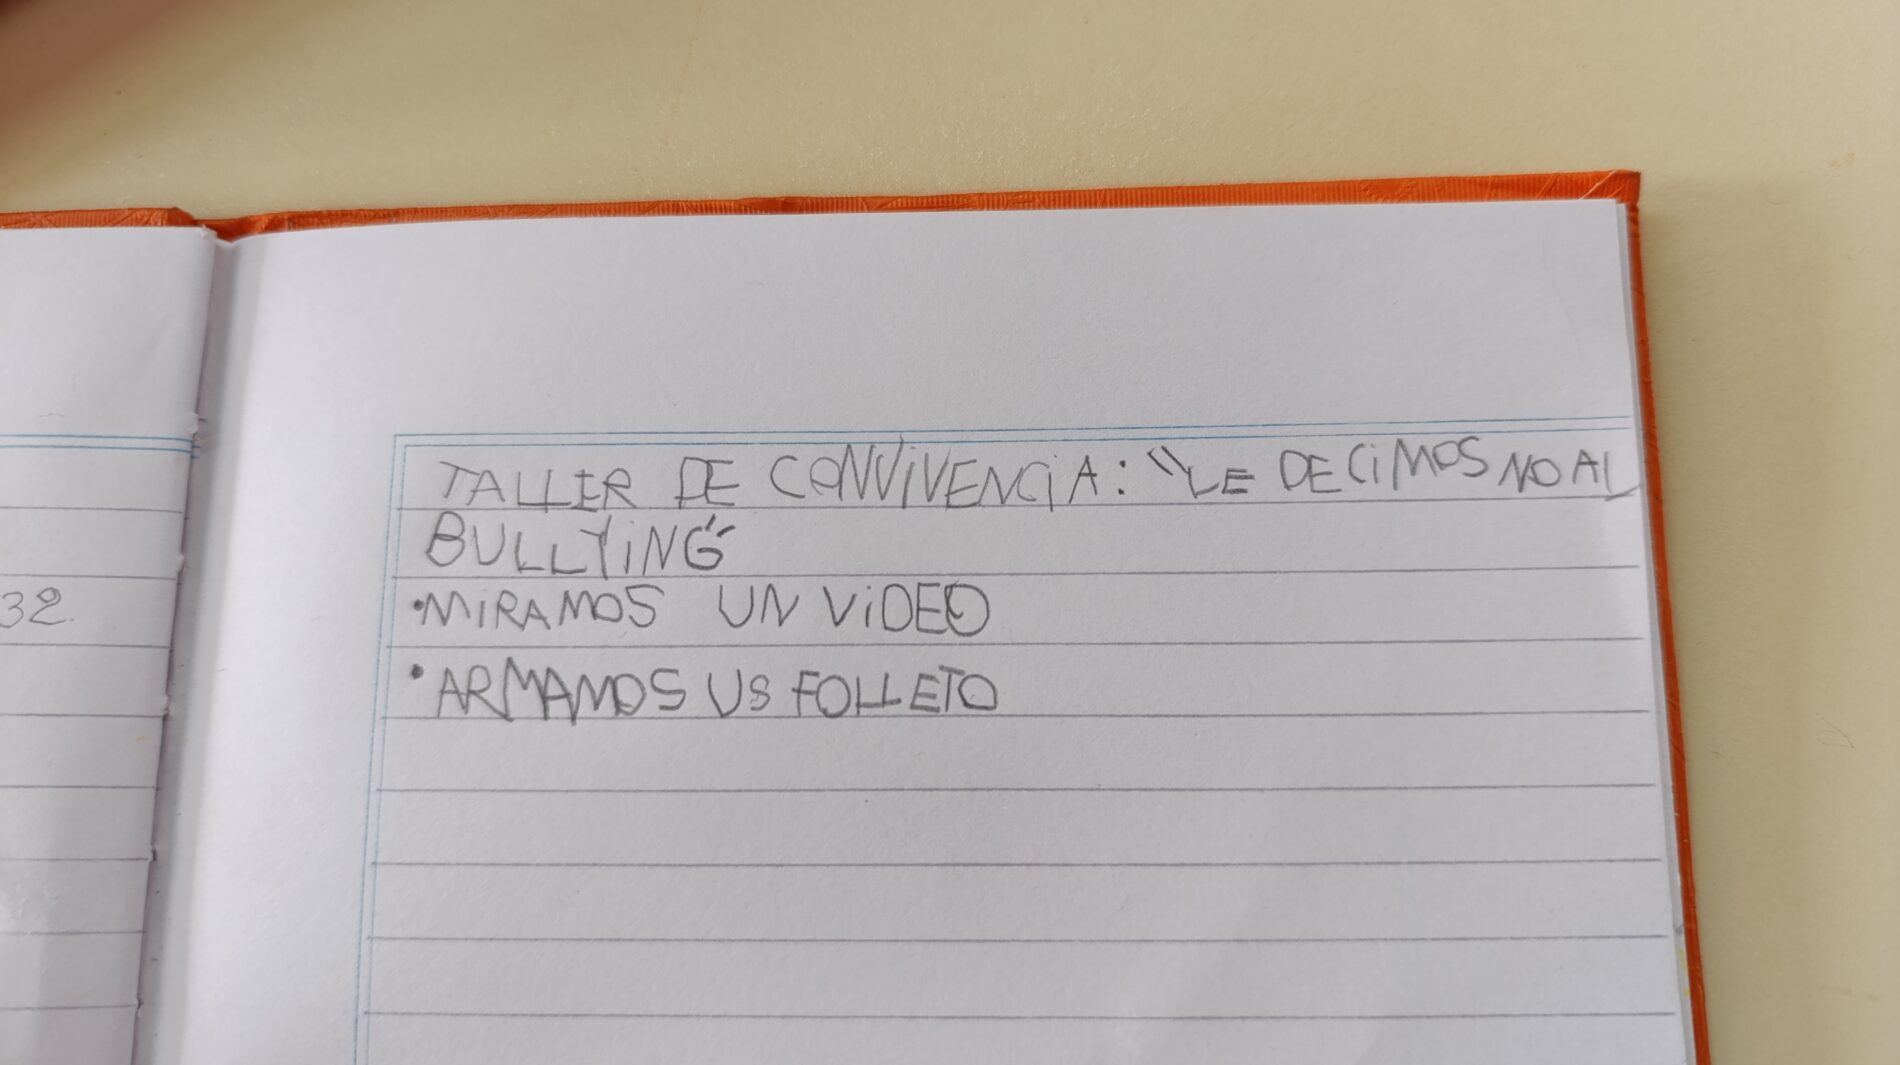 TALLER DE CONVIVENCiA: "LE DECiMOS NO AL
BULLYiNG"
•MiRAMOS UN ViDEO
•ARMAMOS US FOLLETO
32.